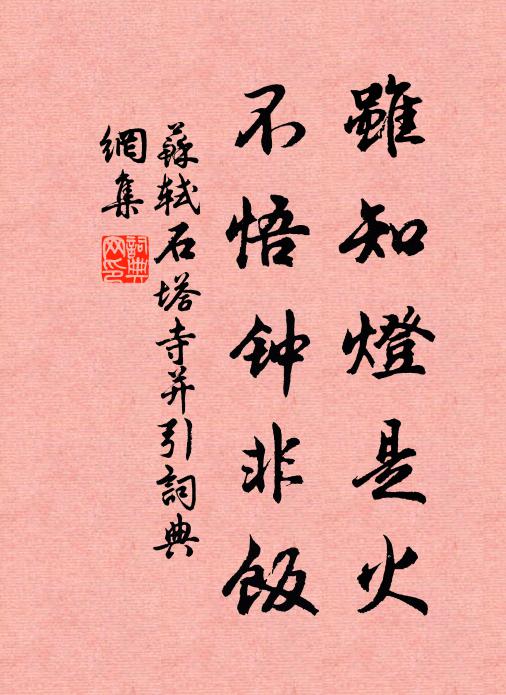 雖知燈是火
不悟钟非飯
蘇軾石塔寺并引詞典
網集
詞典網印